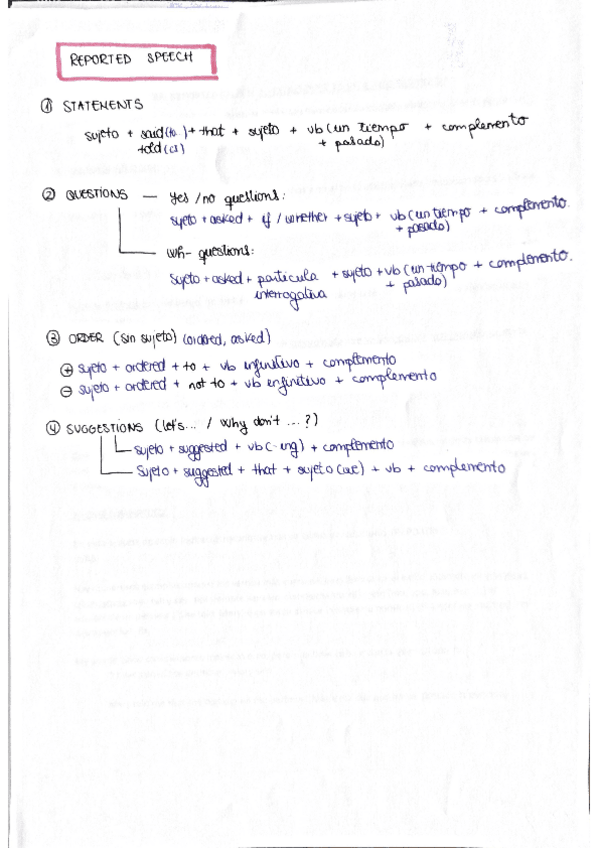 REPORTED SPEECH
① STATEMENTS
sujeto + said(to ) + that + sujeto + vb (un tiempo + complemento
+told (CI) + pasado)
② QUESTIONS — yes / no questions:
sujeto + asked + if / whether + sujeto + vb (un tiempo + complemento.
+ pasado)
Wh- questions:
sujeto + asked + partícula + sujeto + vb (un tiempo + complemento.
interrogativa + pasado)
③ ORDER (sin sujeto) (ordered, asked)
⊕ sujeto + ordered + to + vb infinitivo + complemento
⊖ sujeto + ordered + not to + vb infinitivo + complemento
④ SUGGESTIONS (let's... / Why don't ...?)
sujeto + suggested + vb (-ing) + complemento
Sujeto + suggested + that + sujeto (we) + vb + complemento